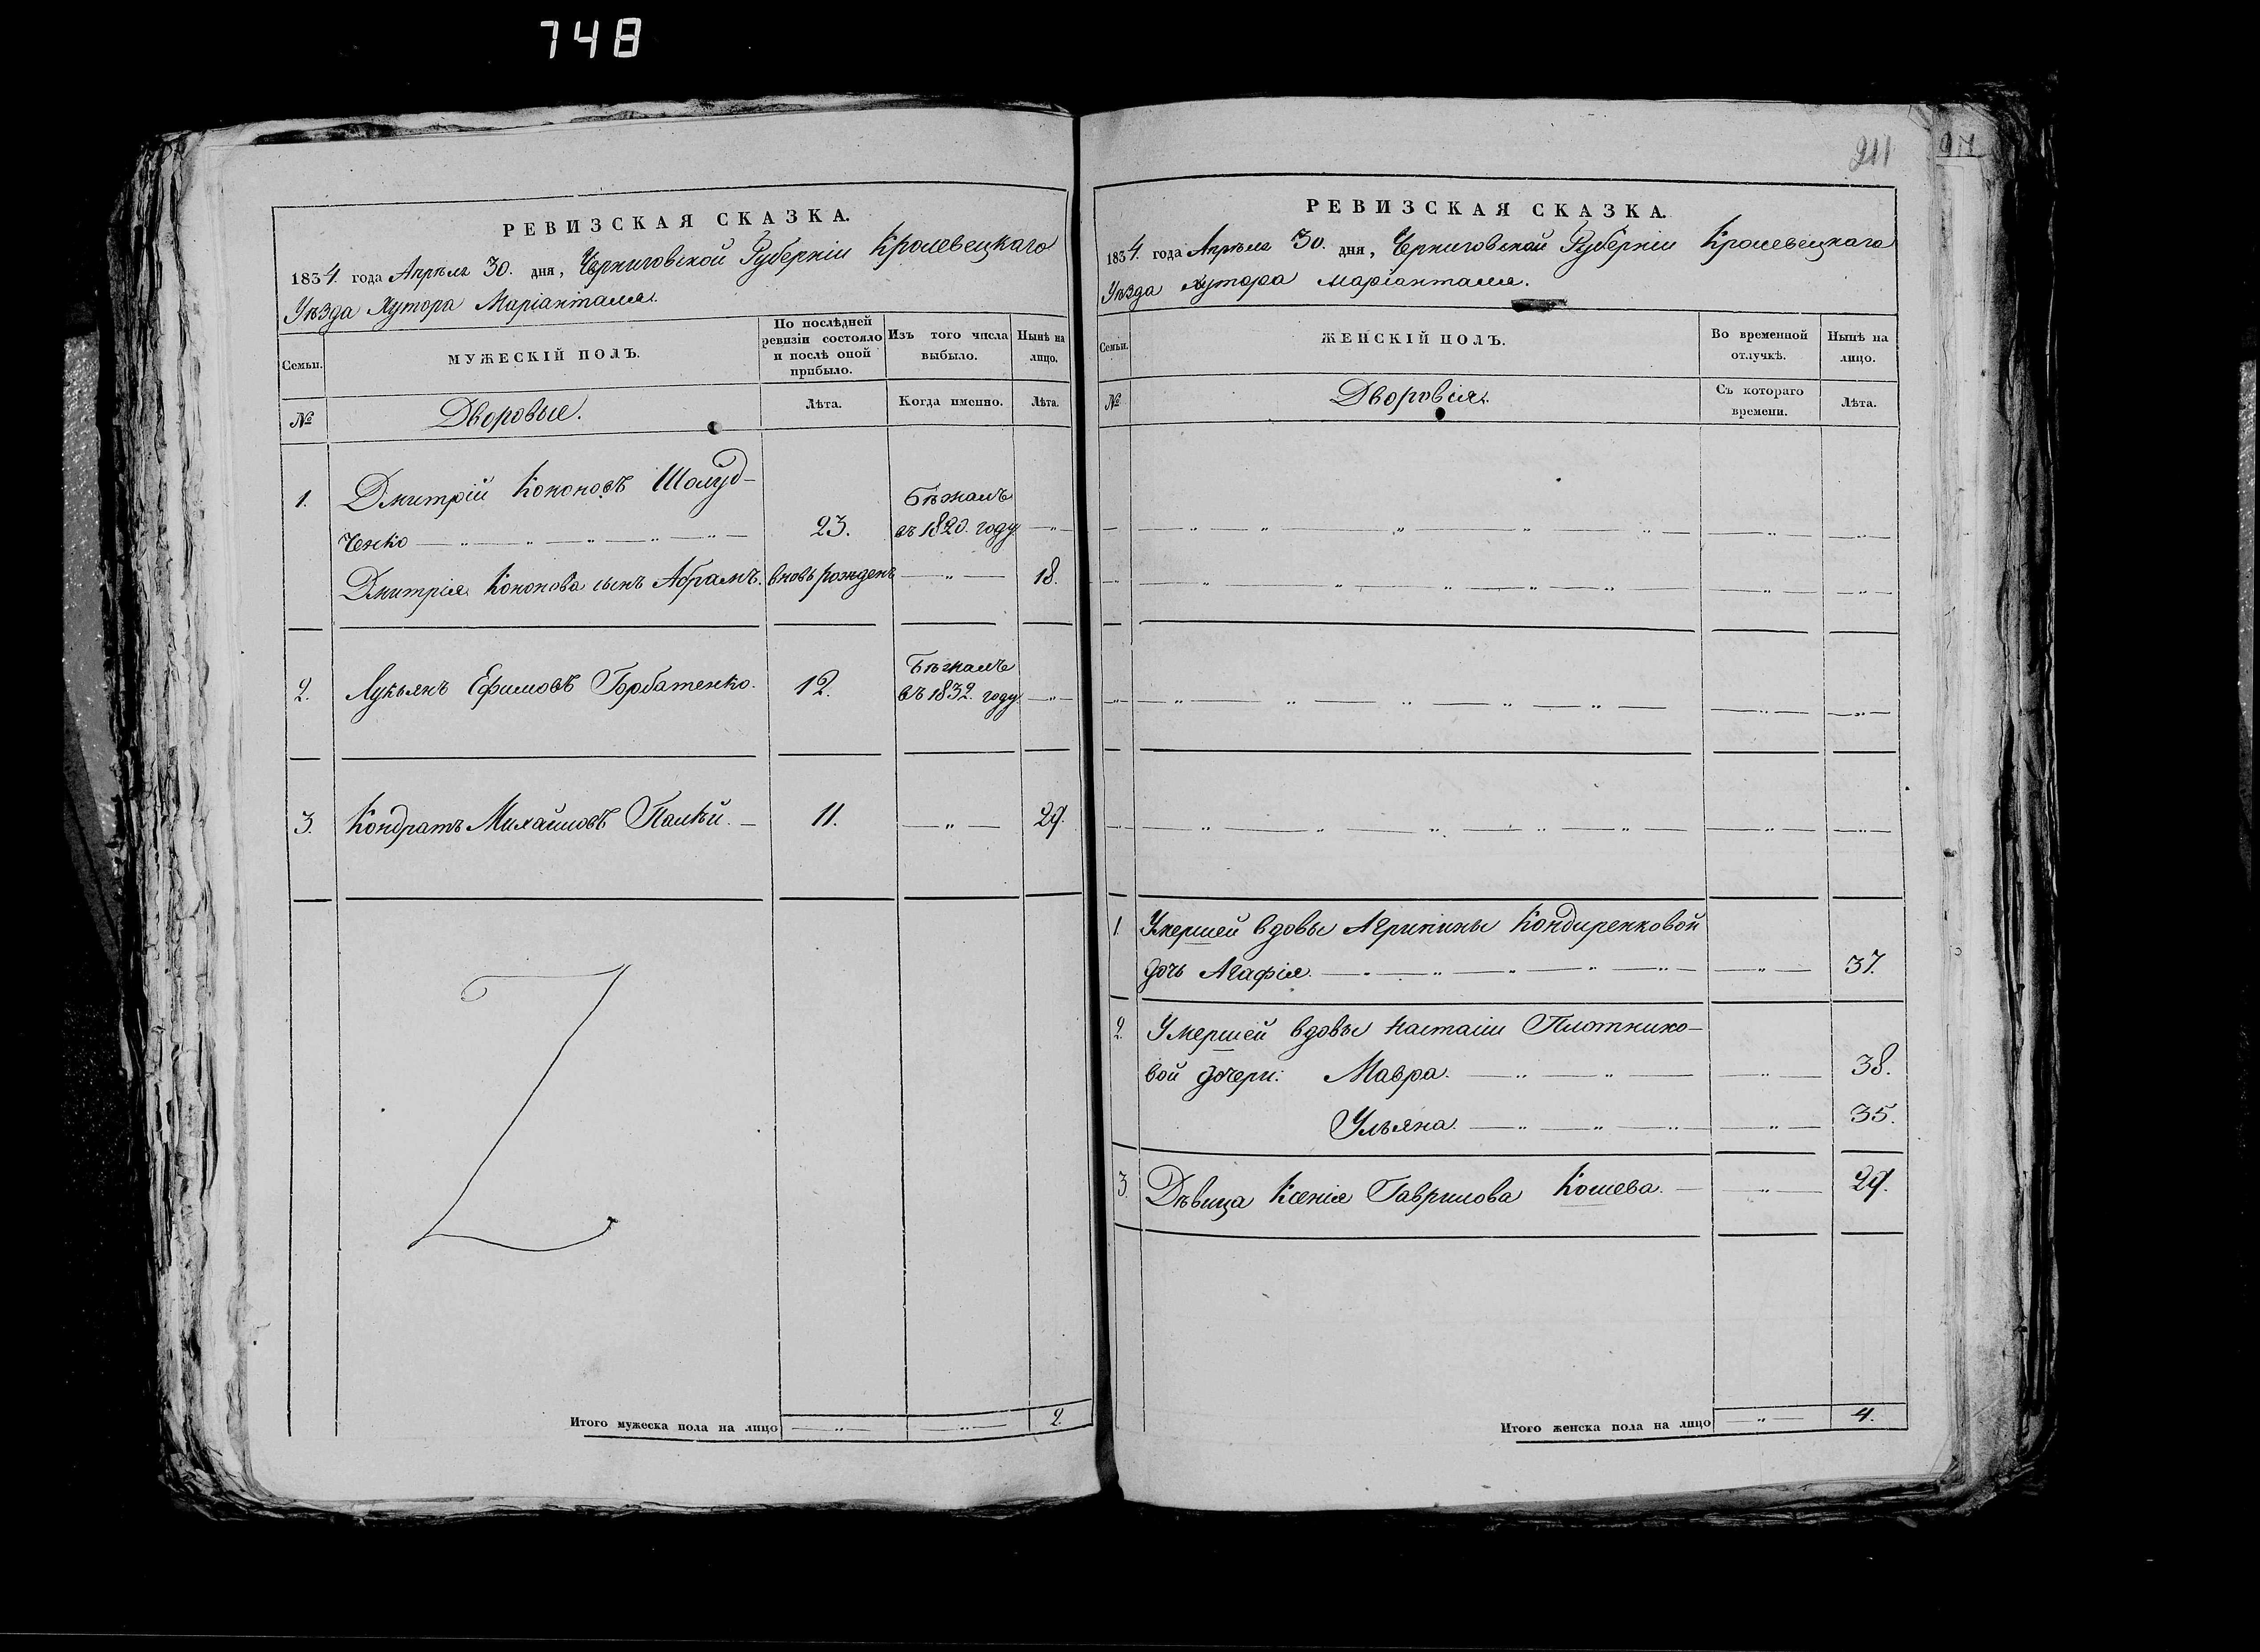 748
РЕВИЗСКАЯ СКАЗКА.
1834. года Апрѣля 30. дня, Черниговской Губерніи Кролевецкаго
Уѣзда Хутора Маріанталя.
Семьи.
МУЖЕСКІЙ ПОЛЪ.
По послѣдней ревизіи состояло и послѣ оной прибыло.
Изъ того числа выбыло.
Нынѣ на лицо.
№
Дворовые.
Лѣта.
Когда именно.
Лѣта.
1. Дмитрій Кононовъ Шолуд-
ченко — „ — „ — „ — „ — „ — 23. Бѣжалъ въ 1820. году — „ —
Дмитрія Кононова сынъ Абрамъ. вновь рожденъ — „ — 18.
2. Лукьянъ Ефимовъ Горбатенко. 12. Бѣжалъ въ 1832. году — „ —
3. Кондратъ Михайловъ Палѣй. — 11. — „ — 29.
Итого мужеска пола на лицо — „ — — „ — 2.
211
РЕВИЗСКАЯ СКАЗКА.
1834. года Апрѣля 30. дня, Черниговской Губерніи Кролевецкаго
Уѣзда хутора Маріанталя.
Семьи.
ЖЕНСКІЙ ПОЛЪ.
Во временной отлучкѣ.
Нынѣ на лицо.
№
Дворовія.
Съ котораго времени.
Лѣта.
1. Умершей вдовы Агрипины Кондиренковой
дочь Агафія. — „ — „ — „ — „ — „ — — „ — 37.
2. Умершей вдовы Настасіи Плотнико-
вой дочери: Мавра. — „ — „ — — „ — 38.
Ульяна. — „ — „ — „ — — „ — 35.
3. Дѣвица Ксенія Гаврилова Кошева. — — „ — 29.
Итого женска пола на лицо — „ — 4.